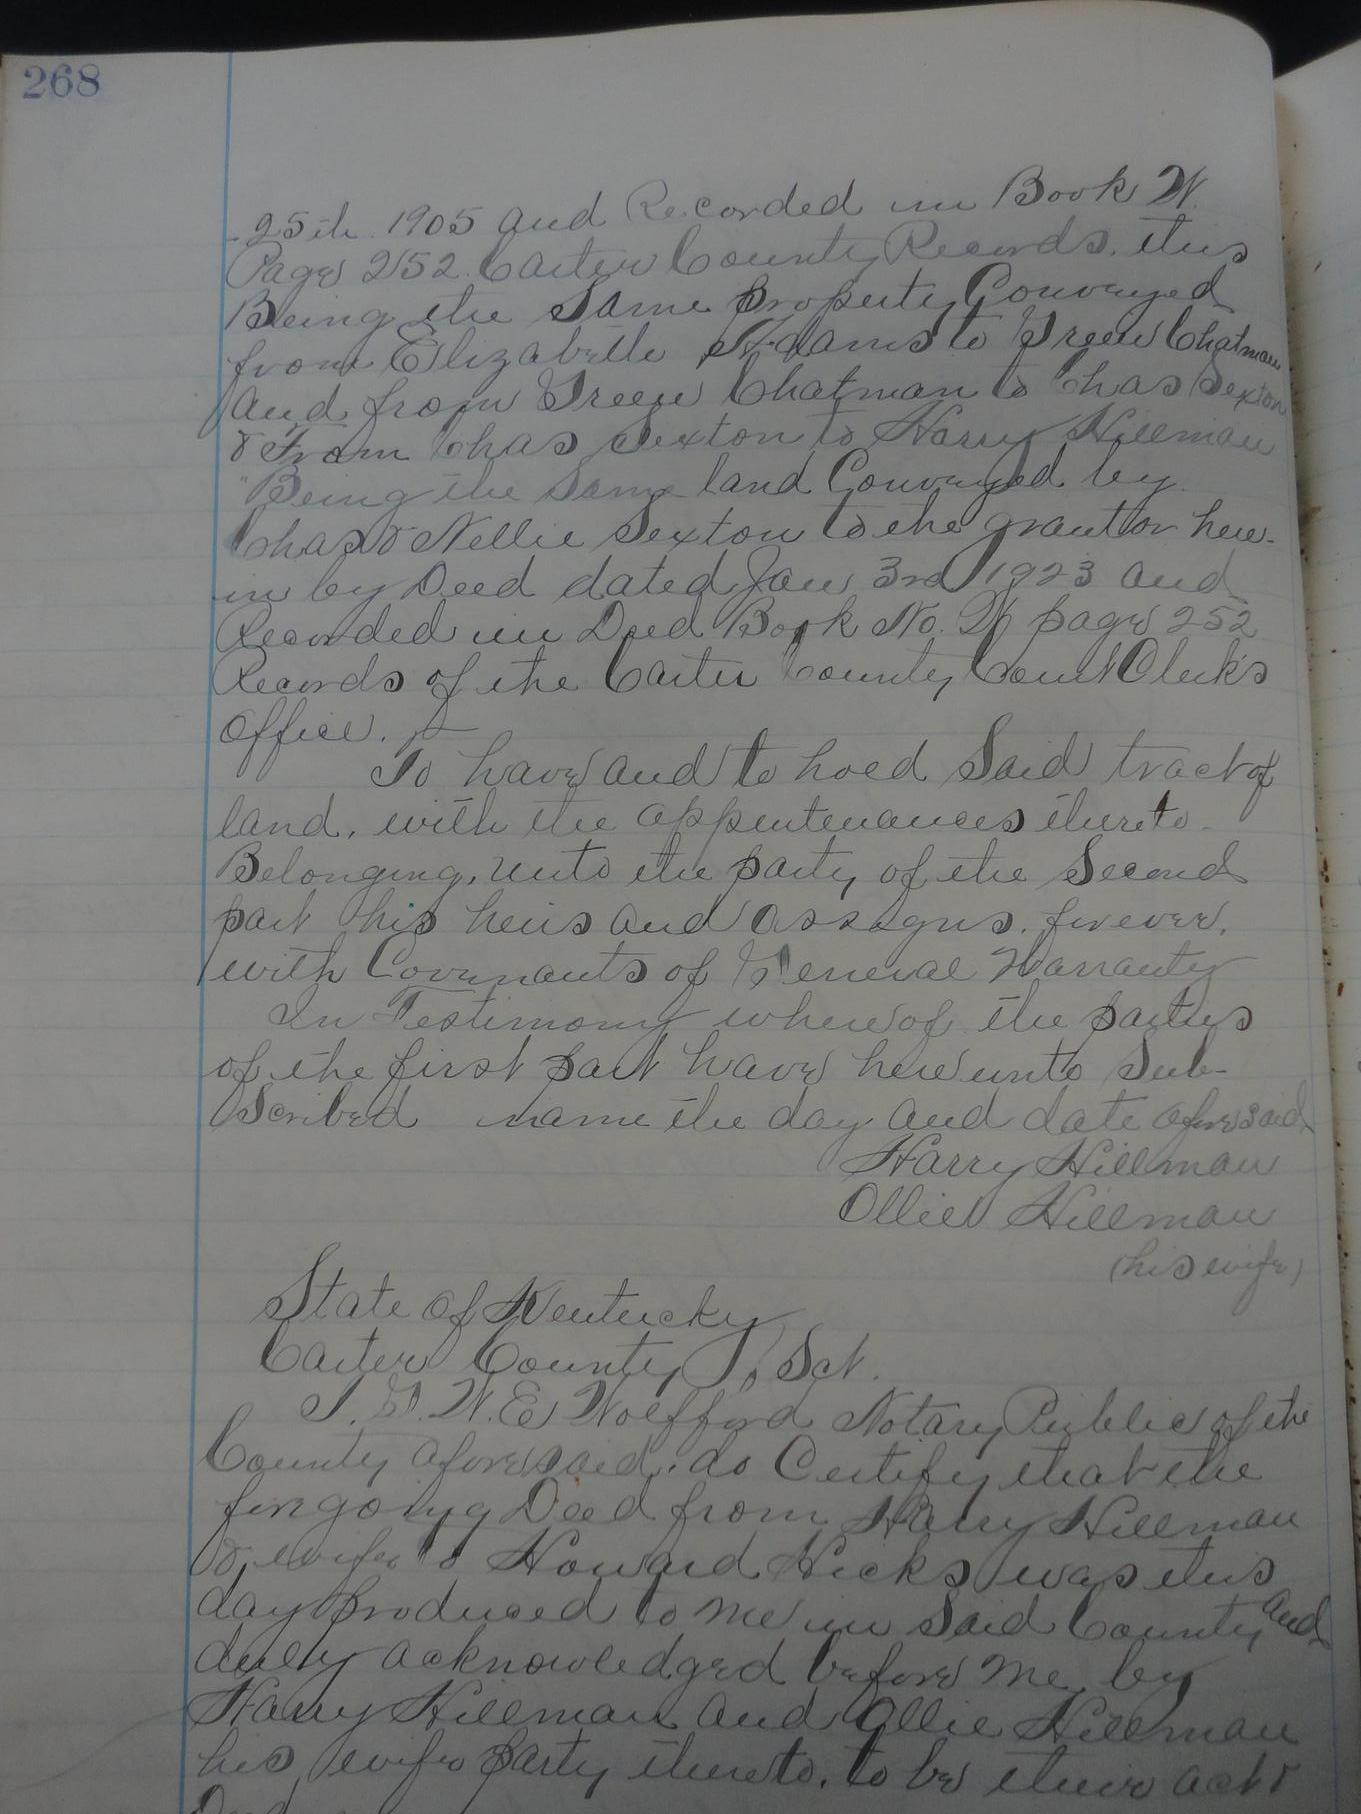 268
25th 1905 and Recorded in Book W.
Page 252 Carter County Records. this
Being the Same property Conveyed
from Elizabeth Adams to Green Chatman
and from Green Chatman to Chas Sexton
& From Chas Sexton to Harry Hillman
"Being the Same land Conveyed by
Chas & Nellie Sexton to the grantor here-
in by Deed dated Jan 3rd 1923 and
Recorded in Deed Book No. W page 252
Records of the Carter County Court Clerk's
Office.
To have and to hold Said tract of
land. with the appurtenances thereto
Belonging, unto the party of the Second
part his heirs and assigns. forever.
with Covenants of General Warranty
In Testimony whereof the parties
of the first part have hereunto Sub-
Scribed name the day and date aforesaid
Harry Hillman
Ollie Hillman
(his wife)
State of Kentucky
Carter County Sct.
I. G. W. E Wolfford Notary Public of the
County aforesaid. do Certify that the
forgoing Deed from Harry Hillman
& wife to Howard Hicks was this
day produced to me in Said County and
duly acknowledged before me by
Harry Hillman and Ollie Hillman
his wife party thereto. to be their act &